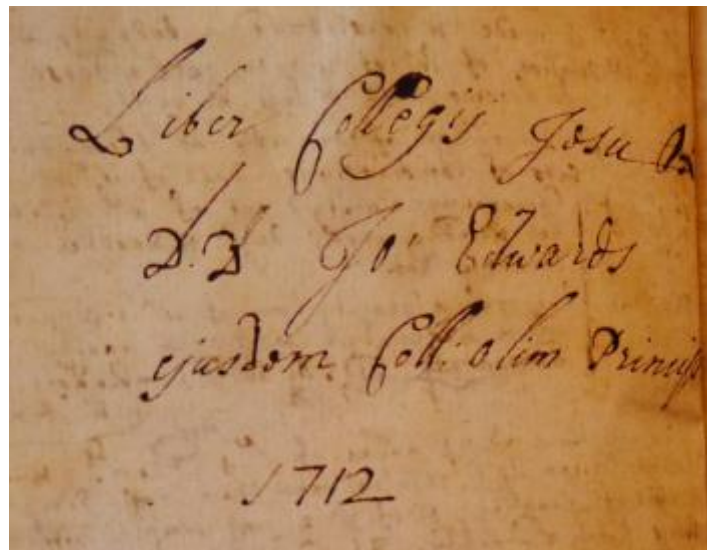 Liber Collegij Jesu
D.D Jo: Edwards
ejusdem Coll: olim Princip
1712